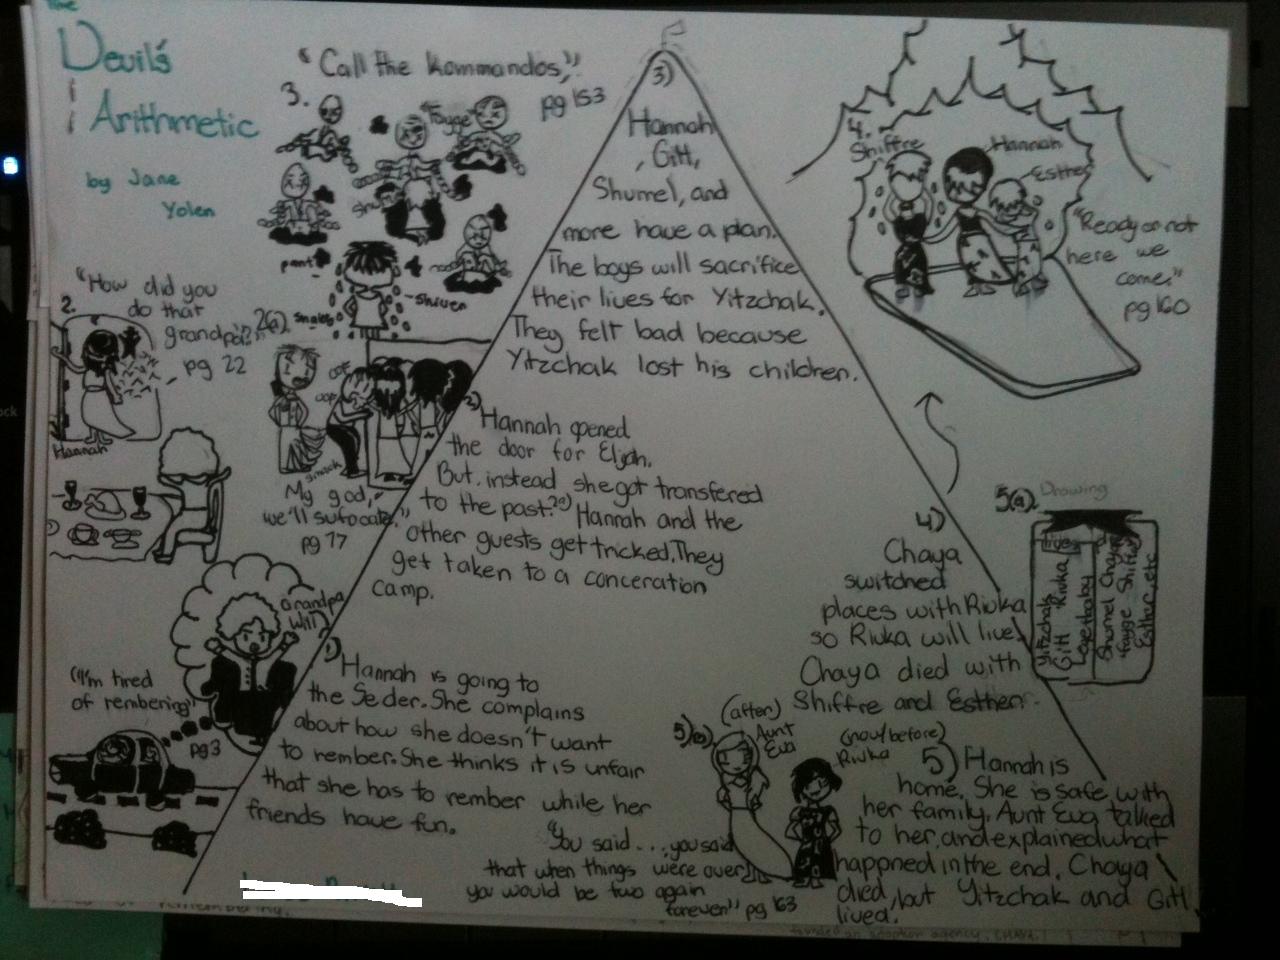 The
Devil's
Arithmetic
by Jane
Yolen
"Call the Kommandos,"
pg 153
3.
Fayge
pant
Shriven
"How did you
do that
grandpa?"
pg 22
2.
Hannah
2(a).
OOF
OOF
smack
My god,
we'll sufocate,"
pg 77
Grandpa
Will
"I'm tired
of rembering"
pg 3
3)
Hannah
, Gitl,
Shumel, and
more have a plan.
The boys will sacrifice
their lives for Yitzchak.
They felt bad because
Yitzchak lost his children.
2)
Hannah opened
the door for Elijah.
But, instead she got transfered
to the past. 2a) Hannah and the
other guests get tricked. They
get taken to a conceration
camp.
1)
Hannah is going to
the Seder. She complains
about how she doesn't want
to rember. She thinks it is unfair
that she has to rember while her
friends have fun.
4.
Shiffre
Hannah
Esther
"Ready or not
here we
come."
pg 160
4)
Chaya
switched
places with Rivka
so Rivka will live.
Chaya died with
Shiffre and Esther.
5(a).
Drawing
Yitzchak
Gitl Rivka
Shumel Chaya
Fayge Shiffre
Esther, etc
(after)
Aunt
Eva
(now/before)
Rivka
"You said... you said
that when things were over
you would be two again
forever" pg 163
5) Hannah is
home. She is safe with
her family. Aunt Eva talked
to her, and explained what
happned in the end. Chaya
died, but Yitzchak and Gitl
lived.